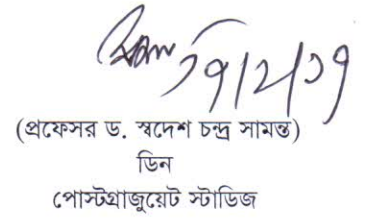 (প্রফেসর ড. স্বদেশ চন্দ্র সামন্ত)
ডিন
পোস্টগ্রাজুয়েট স্টাডিজ